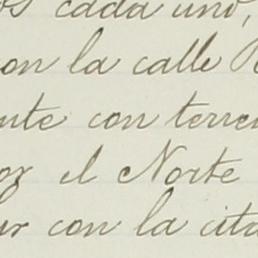 os cada uno,
con la calle
ente con terre
por el Norte
ur con la cita